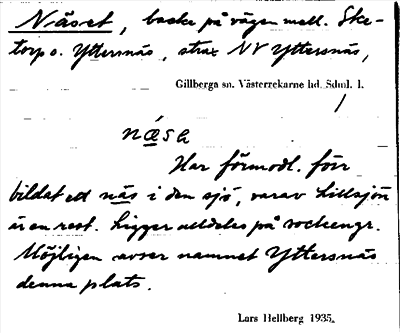 Näset, backe på vägen mell. Ske-
torp o. Yttersnäs, strax NV Yttersnäs,
Gillberga sn. Västerrekarne hd. Sdml. 1.
næsa
Har förmodl. förr
bildat ett näs i den sjö, varav Lillsjön
är en rest. Ligger alldeles på sockengr.
Möjligen avser namnet Yttersnäs
denna plats.
Lars Hellberg 1935.